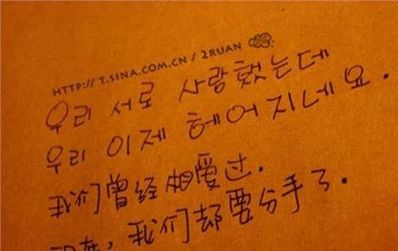 HTTP://T.SINA.COM.CN/2RUAN
우리 서로 사랑했는데
우리 이제 헤어지네요.
我们曾经相爱过.
现在, 我们却要分手了.